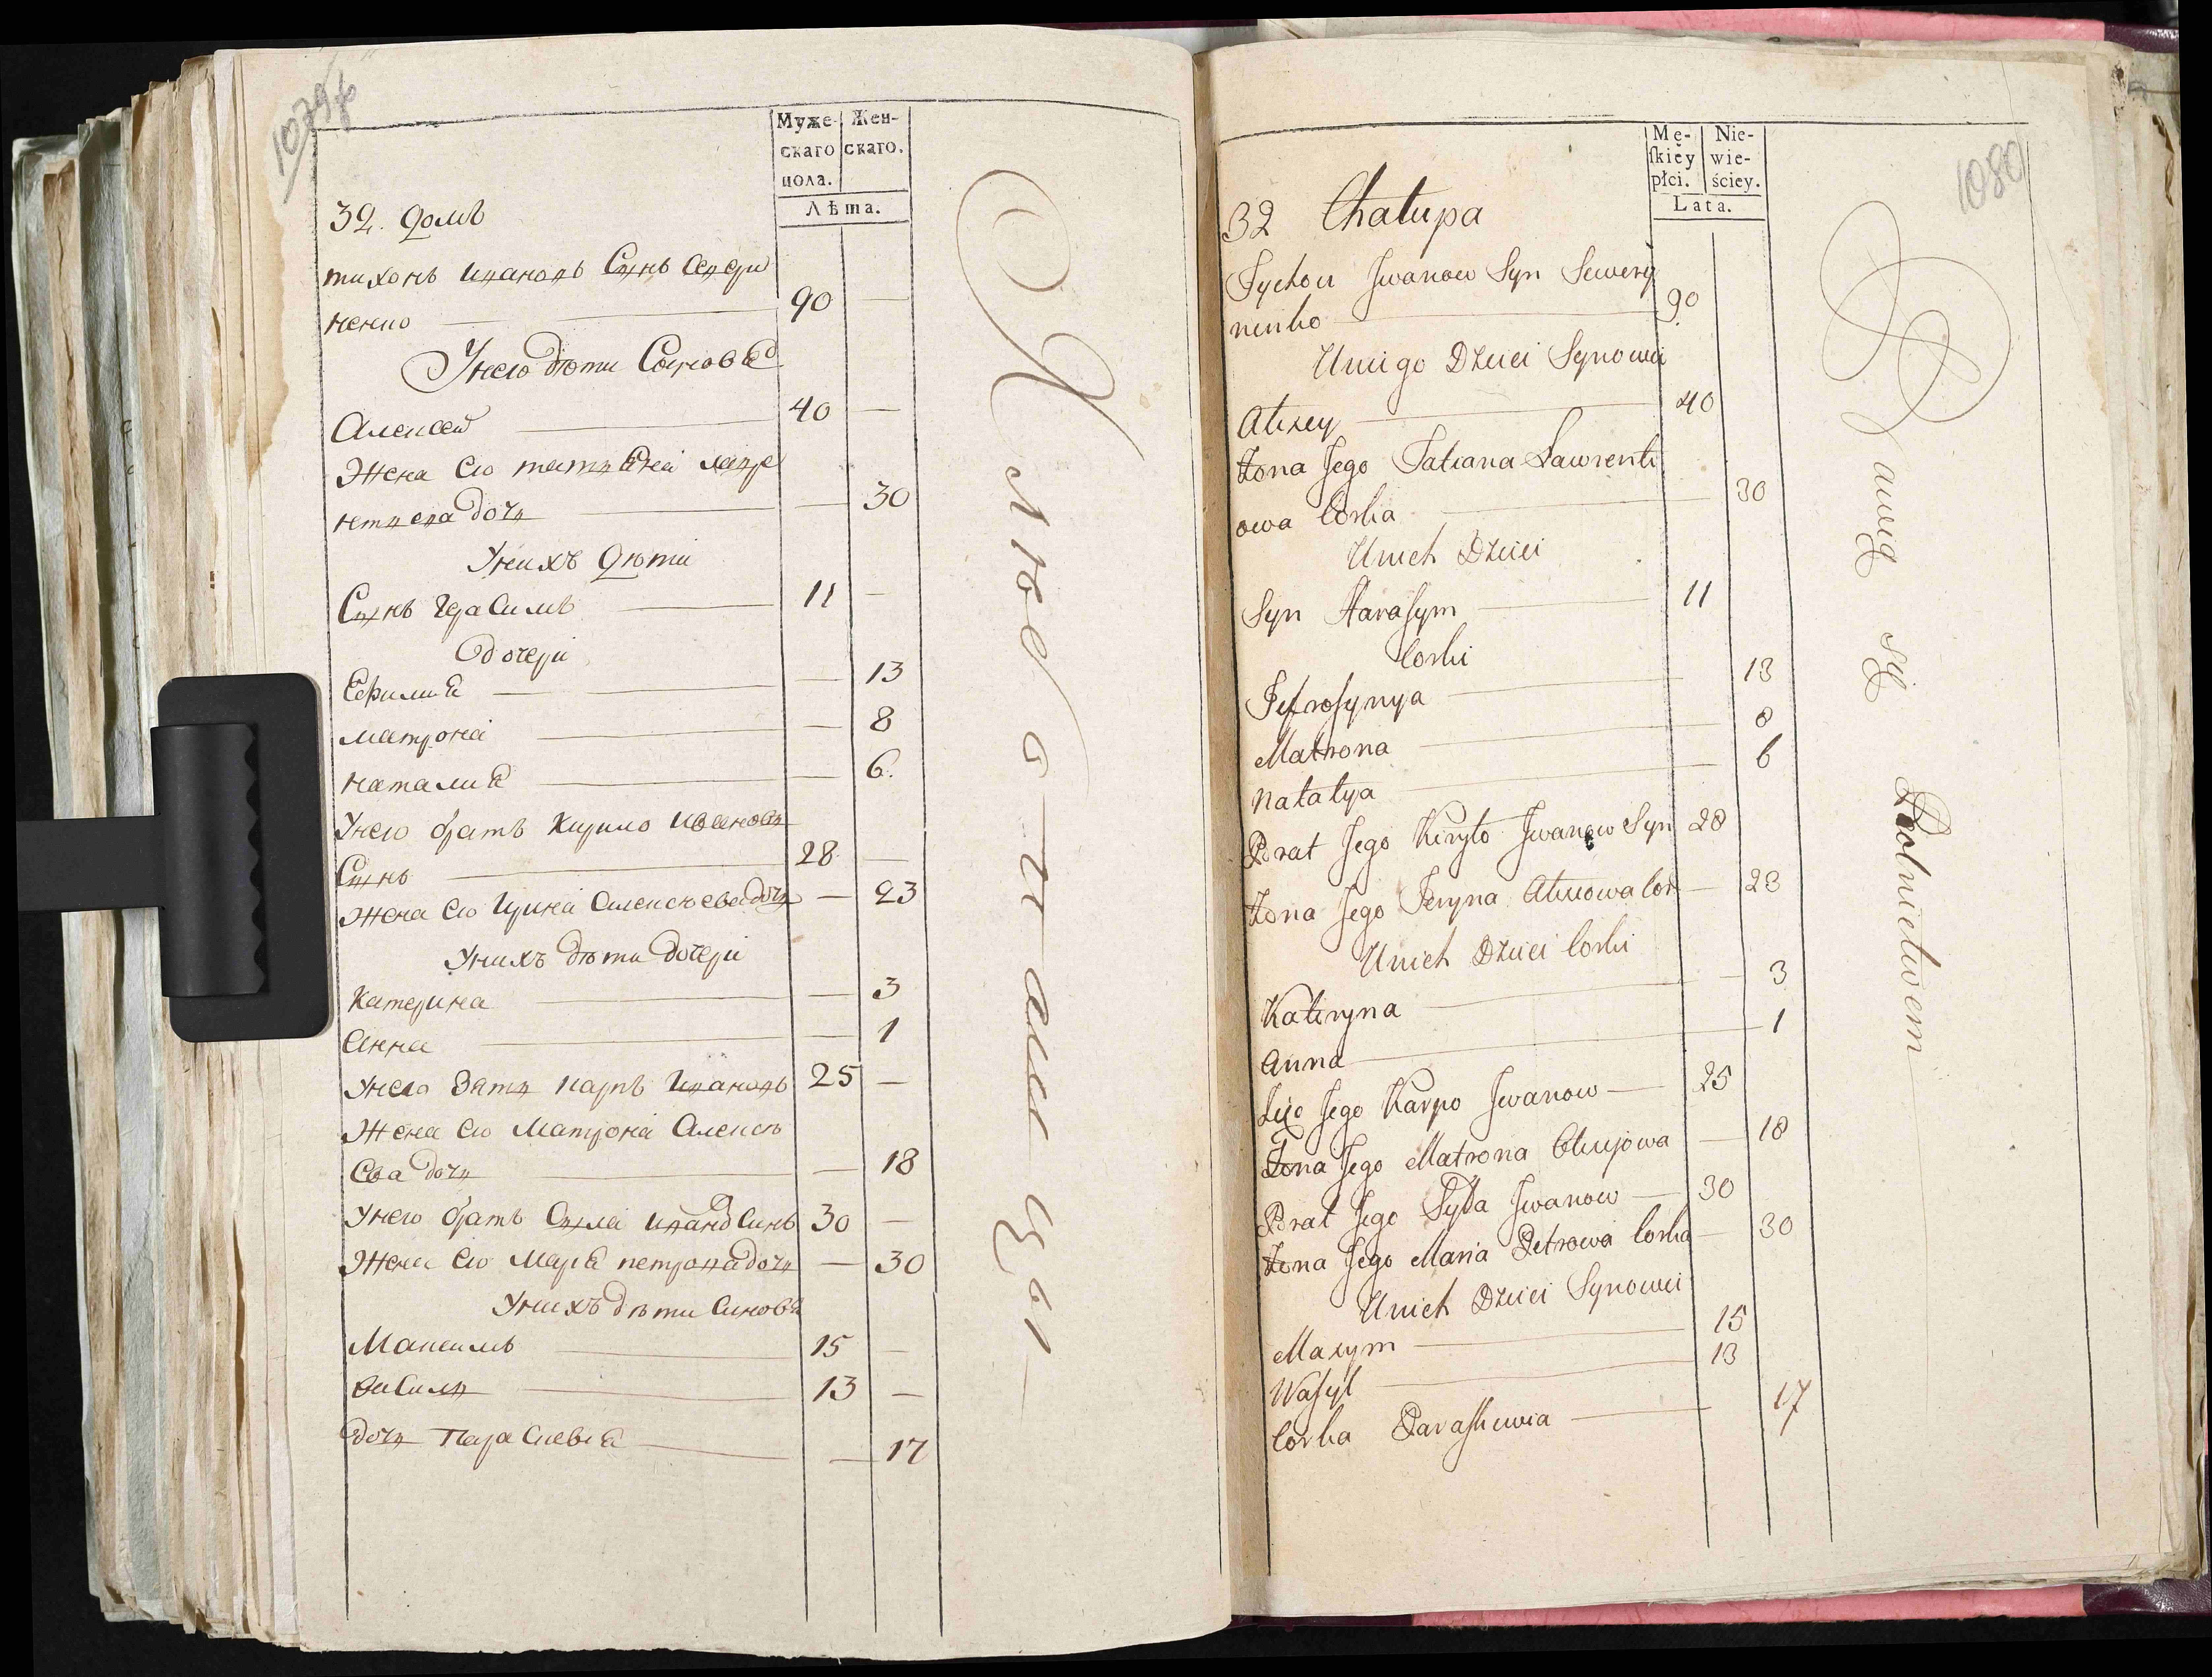 1079
Муже-
скаго
пола.
Жен-
скаго.
Лѣта.
32. домъ
тихонъ ивановъ Сынъ севери
ненко 90 —
Унего дѣти Сыновѣ
Алексей 40 —
Жена его татіяна лавре
нтиева дочь — 30
Унихъ дѣти
Сынъ герасимъ 11 —
дочери
Ефимия — 13
матрона — 8
наталия — 6.
Унего братъ Кирило ивановъ
Сынъ 28 —
Жена его Ирина алексѣева дочь — 23
Унихъ дѣти дочери
Катерина — 3
анна — 1
Унего Зять карпъ ивановъ 25 —
Жена его Матрона алексѣ
ева дочь — 18
Унего братъ Сыла иванов Синъ 30 —
Жена его Маря петрова дочь — 30
Унихъ дѣти Синовѣ
Максимъ 15 —
васыль 13 —
дочь Параскевия — 17
1080
Mę-
ſkiéy
płci.
Nie-
wie-
ściey.
Lata.
32 Chałupa
Tychon Jwanow Syn Sewery
nenko 90
Uniego Dzieci Synowei
Alexey 40
Żona Jego Tatiana Lawrenti
owa Corka 30
Unich Dzieci
Syn Haraſym 11
Corki
Jefroſynya 13
Matrona 8
Natalya 6
Brat Jego Kiryło Jwanow Syn 28
Żona Jego Jeryna Alexiowa Cor — 23
Unich Dzieci Corki
Kateryna — 3
Anna 1
Zięć Jego Karpo Jwanow 25
Żona Jego Matrona Olexijowa — 18
Brat Jego Syła Jwanow 30
Żona Jego Maria Petrowa Corka — 30
Unich Dzieci Synowei
Maxym 15
Waſyl 13
Corka Paraſkewia 17
Bawią się Rolnictwem